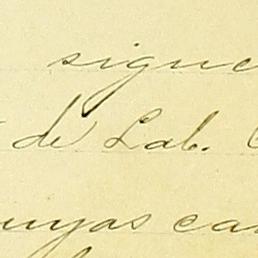 sigue
de Lab.
cuyas ca